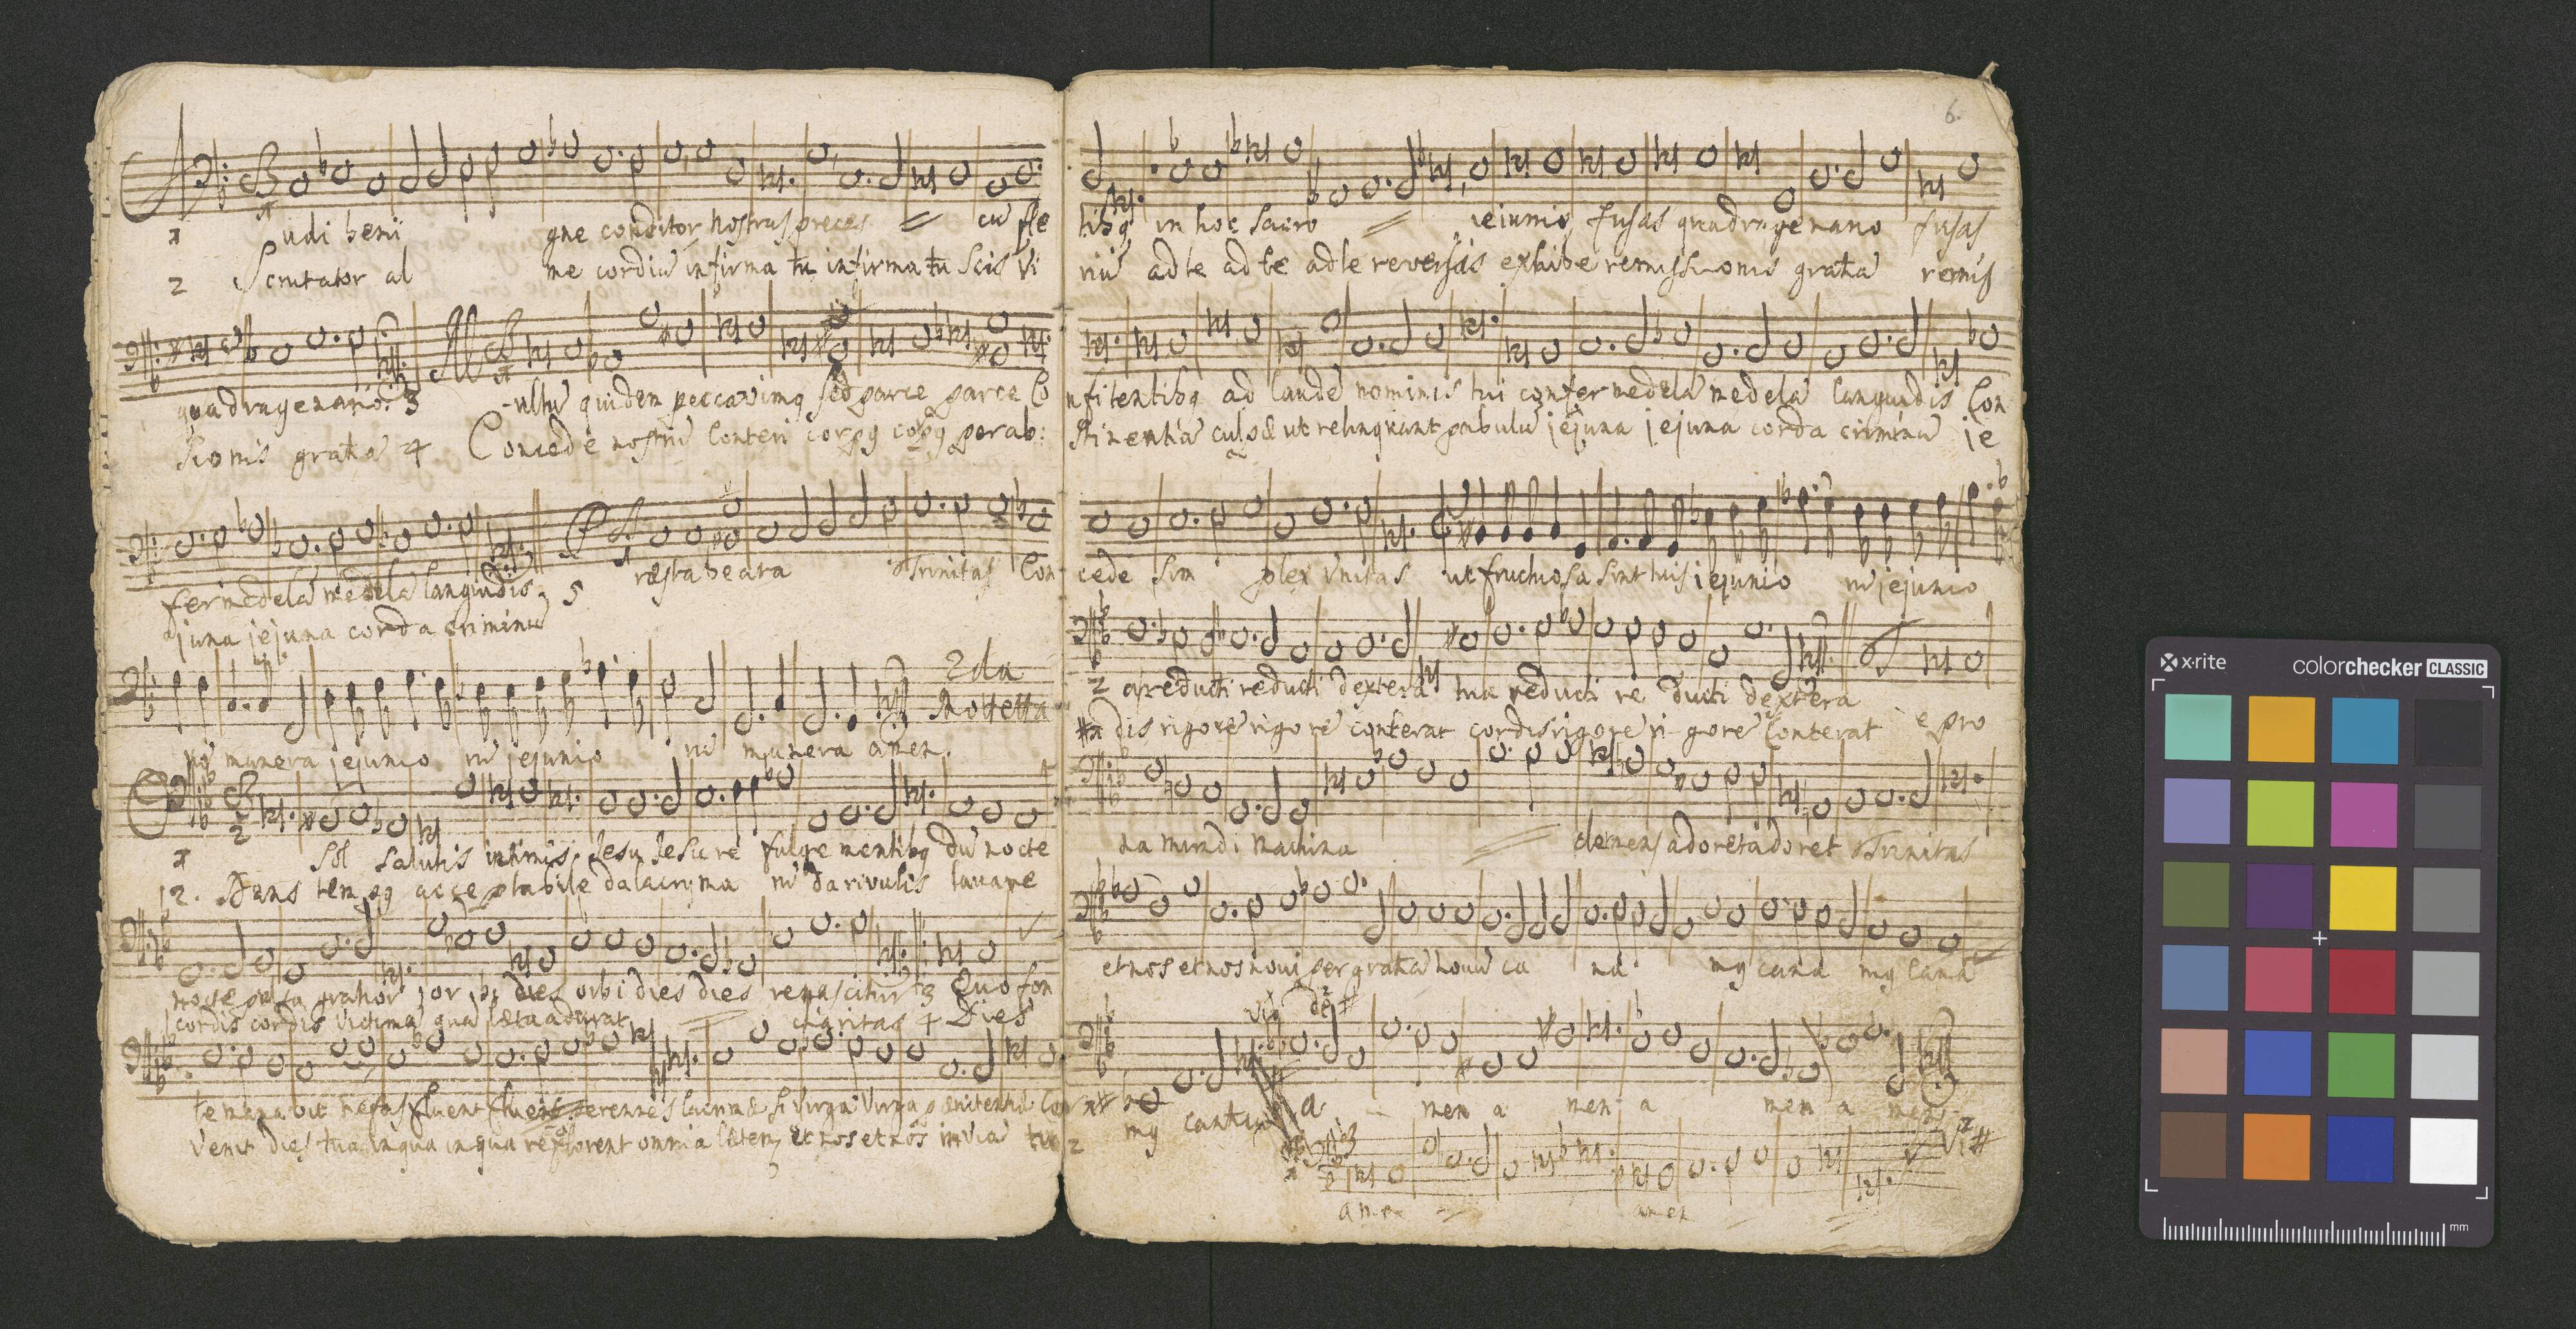 6.
1 Audi beni gne conditor nostras preces = cū fle
2 Scrutator al me cordiū infirma tu infirma tu scis vi
quadragenario. 3 Multū quidem peccavimq sed parce parce Co
sionis gratia 4 Concede nostrū conteri corpq corpq per ab:
fer medelā medelā languidis. 5 Præsta beata Trinitas Con
juna jejuna corda criminū
nō munera jejunio nū jejunio nū munera amen.
2da Mottetta
1 Sol salutis intimis, Jesu Jesu re fulge mentibq dū nocte
2. Dans tempq acceptabile da lacryma nū da rivulis lavare
nocte pulsa gratior or bi dies orbi dies dies renascitur 3 Quo fon
cordis cordis victimā quā læta adurat = charitas 4 Dies
te manavit nefas fluent fluent perennes lacrimæ si virga virga pænitentiæ Cor
venit dies tua in qua in qua reflorent omnia lætemq et nos et nos in via tuā
tibq in hoc sacro = ieiunio, fusas quadragenario fusas
riū ad te ad te ad te reversis exhibe remissionis gratiā remis
nfitentibq ad laudē nominis tui confer medelā medelā languidis Con
stinentiā culpæ ut relinquant pabulū jejuna jejuna corda criminū je
cede sim plex Unitas ut fructuosa sint tuis iejunio nū jejunio
2 a reducti reducti dexterā tua reducti re ducti dexterā
dis rigorē rigorē conterat cordis rigorē ri gorē conterat e pro
na mundi machina = clemens adoret adoret Trinitas
et nos et nos novi per gratiā novū ca na mq cana mq cana
mq canticū a men a men a men a men
amen = amen = =